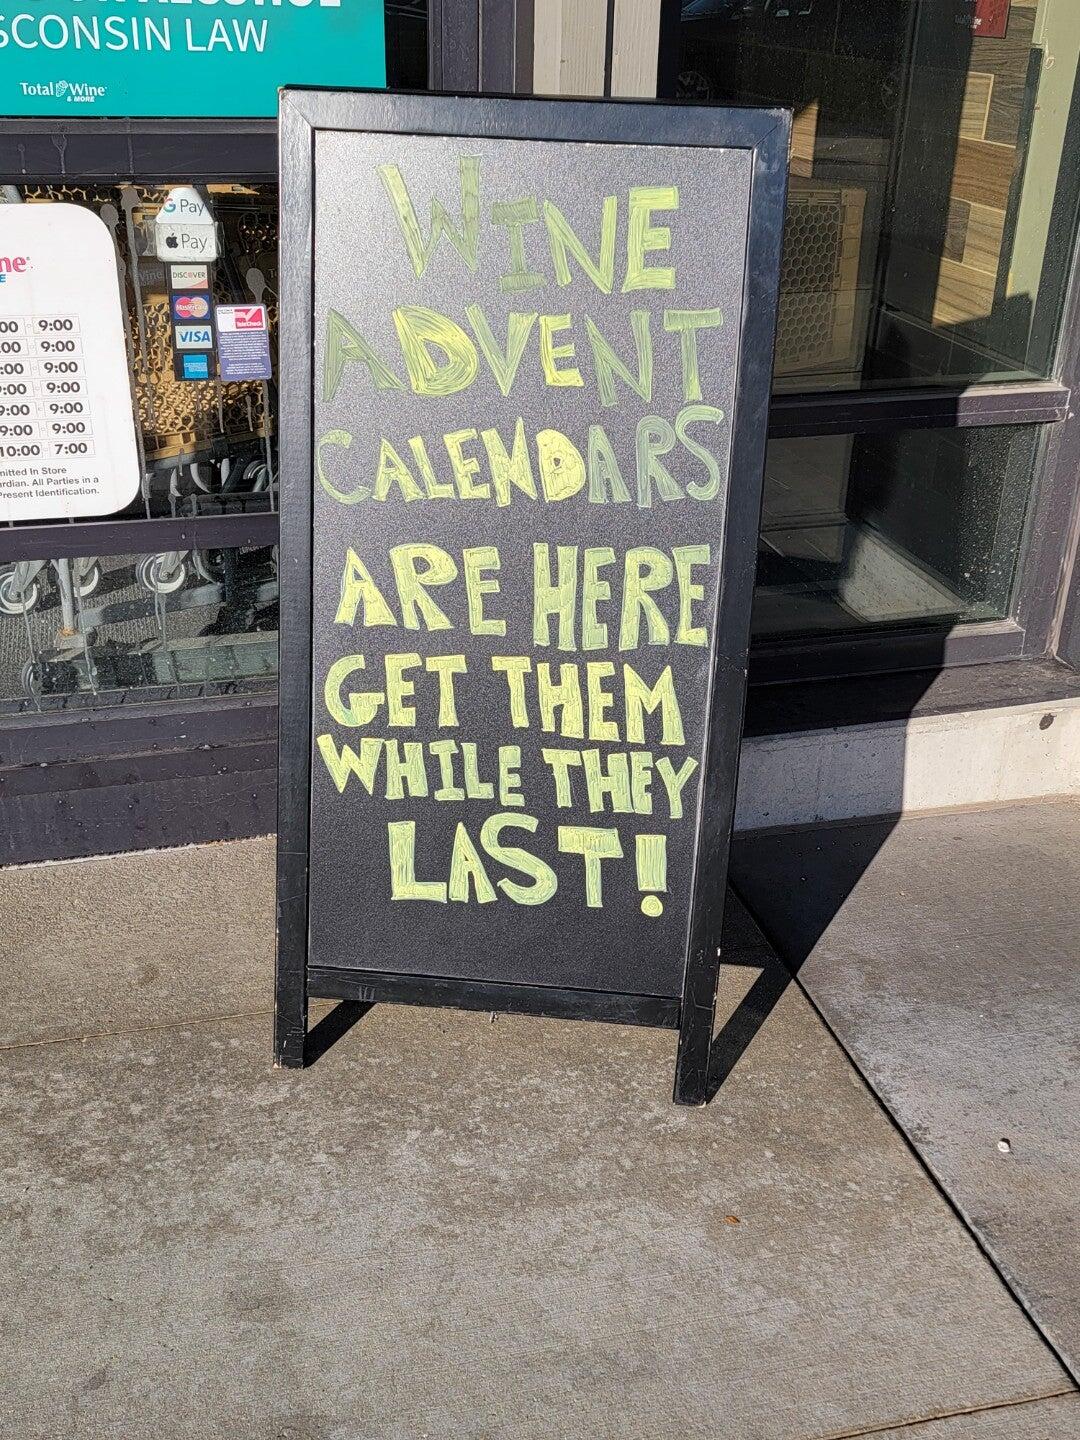 SCONSIN LAW
Total Wine
& MORE
G Pay
Pay
DISCOVER
MasterCard
VISA
TeleCheck
ne
E
00 9:00
00 9:00
:00 9:00
:00 9:00
9:00 9:00
9:00 9:00
10:00 7:00
mitted In Store
rdian. All Parties in a
Present Identification.
WINE
ADVENT
CALENDARS
ARE HERE
GET THEM
WHILE THEY
LAST!